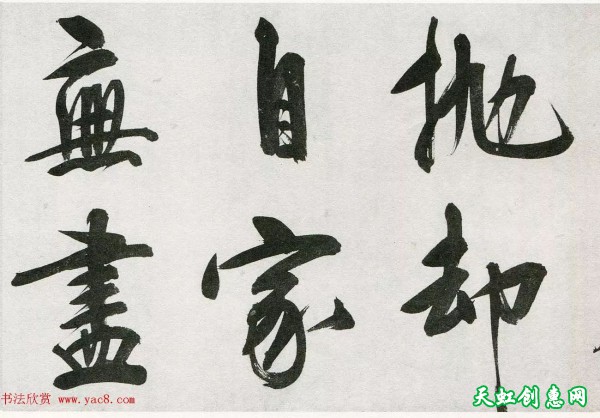 抛却
自家
無盡
书法欣赏 www.yac8.com
天虹创惠网